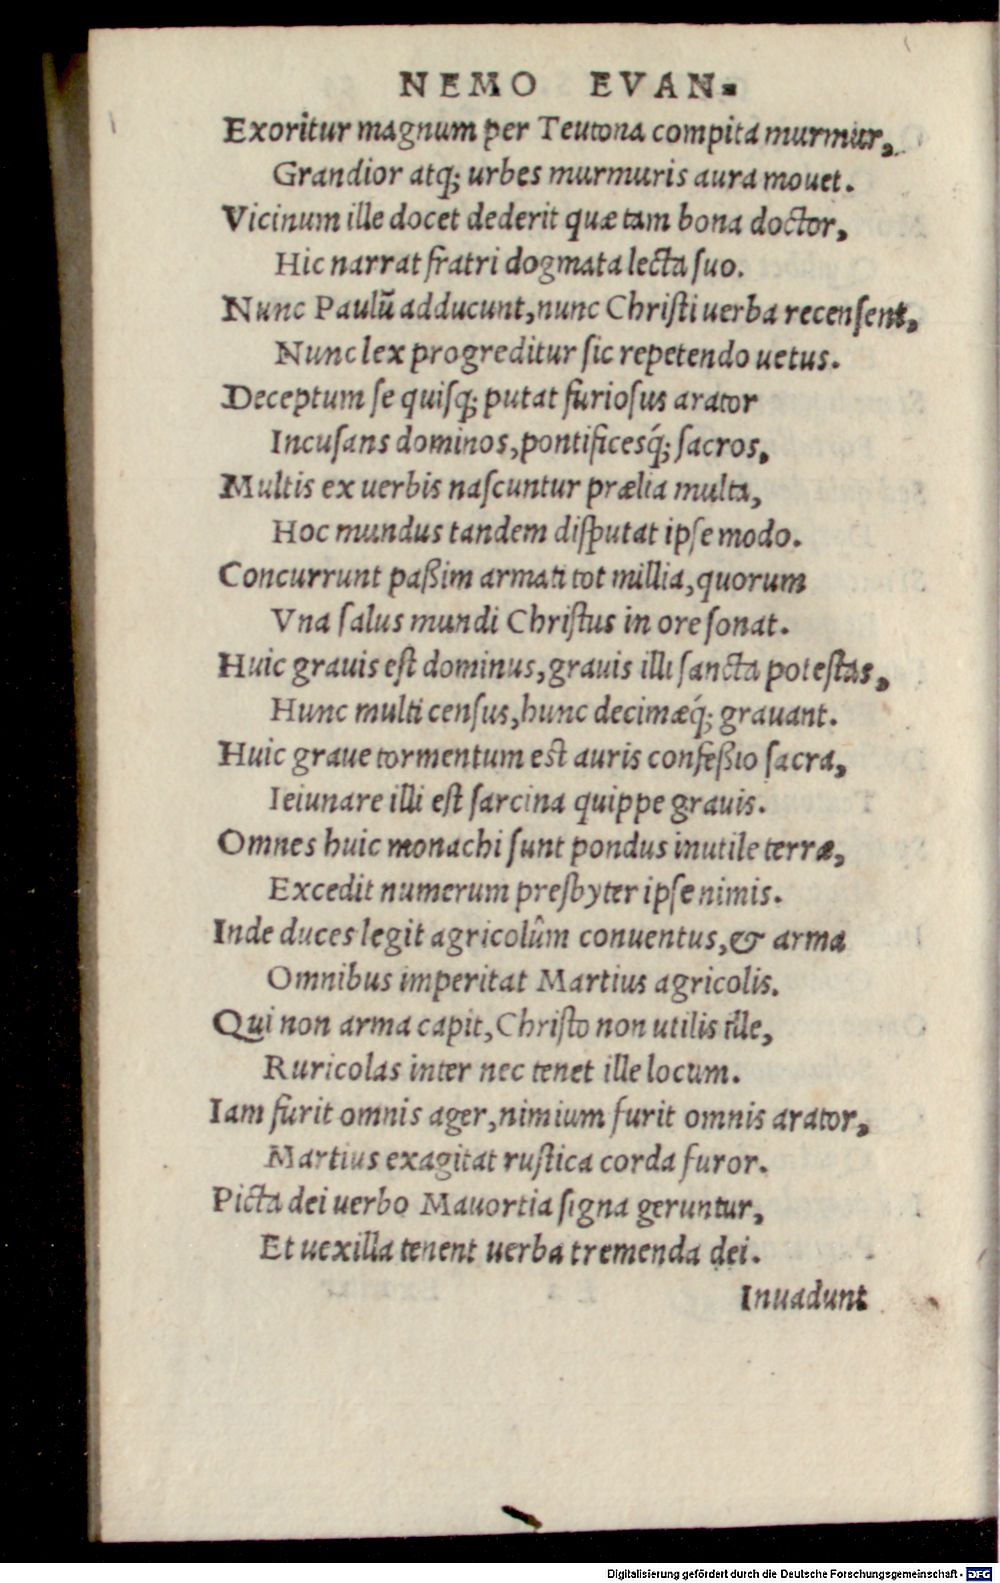 NEMO EVAN-
Exoritur magnum per Teutona compita murmur,
Grandior atq; urbes murmuris aura mouet.
Vicinum ille docet dederit quæ tam bona doctor,
Hic narrat fratri dogmata lecta suo.
Nunc Paulū adducunt, nunc Christi uerba recensent,
Nunc lex progreditur sic repetendo uetus.
Deceptum se quisq; putat furiosus arator
Incusans dominos, pontificesq́; sacros,
Multis ex uerbis nascuntur prælia multa,
Hoc mundus tandem disputat ipse modo.
Concurrunt paßim armati tot millia, quorum
Vna salus mundi Christus in ore sonat.
Huic grauis est dominus, grauis illi sancta potestas,
Hunc multi census, hunc decimæq́; grauant.
Huic graue tormentum est auris confeßio sacra,
Ieiunare illi est sarcina quippe grauis.
Omnes huic monachi sunt pondus inutile terræ,
Excedit numerum presbyter ipse nimis.
Inde duces legit agricolûm conuentus, & arma
Omnibus imperitat Martius agricolis.
Qui non arma capit, Christo non utilis ille,
Ruricolas inter nec tenet ille locum.
Iam furit omnis ager, nimium furit omnis arator,
Martius exagitat rustica corda furor.
Picta dei uerbo Mauortia signa geruntur,
Et uexilla tenent uerba tremenda dei.
Inuadunt
Digitalisierung gefördert durch die Deutsche Forschungsgemeinschaft - DFG